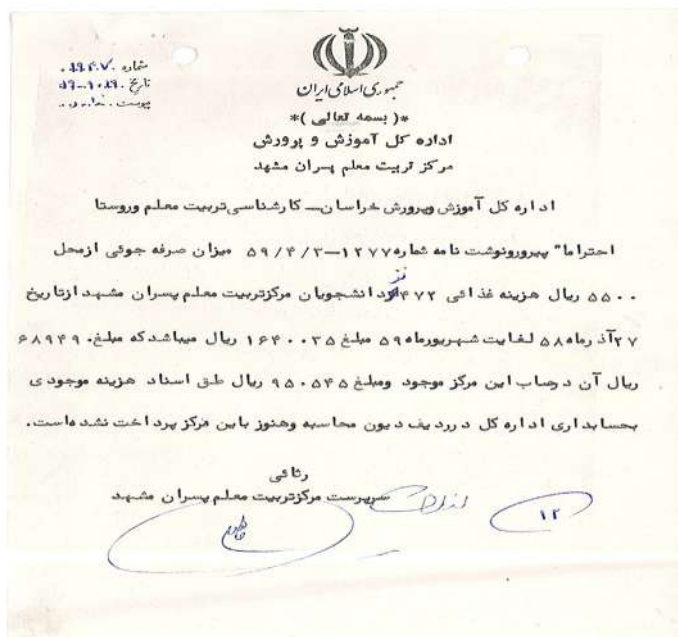 شماره ۱۹۴۰۷
تاریخ
پیوست
جمهوری اسلامی ایران
*( بسمه تعالی )*
اداره کل آموزش و پرورش
مرکز تربیت معلم پسران مشهد
اداره کل آموزش وپرورش خراسان ــ کارشناسی تربیت معلم وروستا
احتراما" پیرورونوشت نامه شماره ۱۲۷۷ــ۵۹/۴/۳ میزان صرفه جوئی ازمحل
۵۵۰۰ ریال هزینه غذائی ۴۷۲ نفر دانشجویان مرکزتربیت معلم پسران مشهد ازتاریخ
۲۷آذرماه۵۸ لغایت شهریورماه۵۹ مبلغ ۱۶۴۰۰۳۵ ریال میباشدکه مبلغ ۶۸۹۴۹۰
ریال آن درحساب این مرکز موجود ومبلغ ۹۵۰۵۴۵ ریال طق اسناد هزینه موجودی
بحسابداری اداره کل درردیف دیون محاسبه وهنوز باین مرکز پرداخت نشده‌است.
رثائی
سرپرست مرکزتربیت معلم پسران مشهد
۱۲